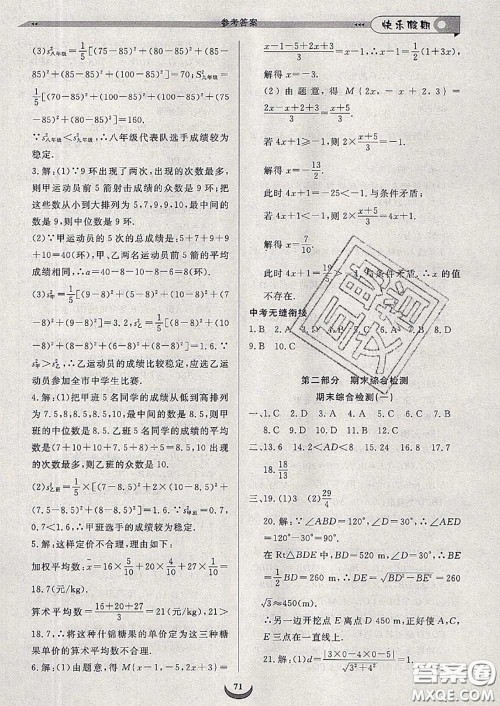 参考答案
快乐假期
(3)s²八年级=1/5[(75-85)²+(80-85)²+(85-85)²
+(85-85)²+(100-85)²]=70;s²九年级=
1/5[(70-85)²+(100-85)²+(100-85)²+(75-
85)²+(80-85)²]=160.
∵s²八年级<s²九年级,∴八年级代表队选手成绩较为
稳定.
3.解:(1)∵9环出现了两次,出现的次数最多,
则甲运动员前5箭射击成绩的众数是9环;把这
些数从小到大排列为5,7,9,9,10,最中间的数是
9,则中位数是9环.
(2)∵甲运动员的5次的总成绩是:5+7+9+9
+10=40(环),甲、乙两名运动员前5箭的平均
成绩相同,∴a=40-8-10-8-6=8(环).
(3)s²甲=1/5[(5-8)²+(7-8)²+(9-8)²+(9-
8)²+(10-8)²]=3.2,s²乙=1/5[(8-8)²+(10-
8)²+(8-8)²+(6-8)²+(8-8)²]=1.6,∵s²甲
>s²乙,∴乙运动员的成绩比较稳定,应选乙运
动员参加全市中学生比赛.
4.解:(1)把甲班5名同学的成绩从低到高排列
为:7.5,8,8.5,8.5,10,最中间的数是8.5,则甲
班的中位数是8.5分;乙班5名同学的平均数是
(7+10+7.5+8+10)÷5=8.5(分),10出现的
次数最多,则乙班的众数是10分.
(2)s²乙班=1/5×[(7-8.5)²+(10-8.5)²+
(7.5-8.5)²+(8-8.5)²+(10-8.5)²]=1.6,∵
0.7<1.6,∴甲班选手的成绩较为稳定.
5.解:这样定价不合理,理由如下:
加权平均数:x=16×5/10+20×2/10+27×3/10=
18.7(元/kg).
算术平均数=(16+20+27)/3=21(元/kg),21>
18.7,∴将这种什锦糖果的单价定为这三种糖果
单价的算术平均数不合理.
6.解:(1)由题意,得M{x-1,-5,2x+3}=
(x-1-5+2x+3)/3=x-1=1/2(1+3x),
解得x=-3.
(2)由题意,得M{2x,-x+2,3}=
(2x-x+2+3)/3=(x+5)/3.
若4x+1≥-1,则4x+1=(x+5)/3.
解得x=-13/2.
此时4x+1=-25<-1.与条件矛盾;
若4x+1<-1,则2x=(x+5)/3=4.
解得x=7/10.
不存在.
中考无缝衔接
9.B 10.C
第二部分 期末综合检测
期末综合检测(一)
18.18/13
三、19.(1)3 (2)29/4
20.解:∵∠ABD=120°,∠D=30°,∴∠AED=
120°-30°=90°,
在Rt△BDE中,BD=520 m,∠D=30°,∴BE=
1/2BD=260 m,∴DE=√(BD²-BE²)=260
√3≈450(m).
∴另一边开挖点E离点D 450 m,正好使A,C,E
三点在一直线上.
21.解:(1)d=|3×0-4×0-5|/√(3²+4²)=1.
71